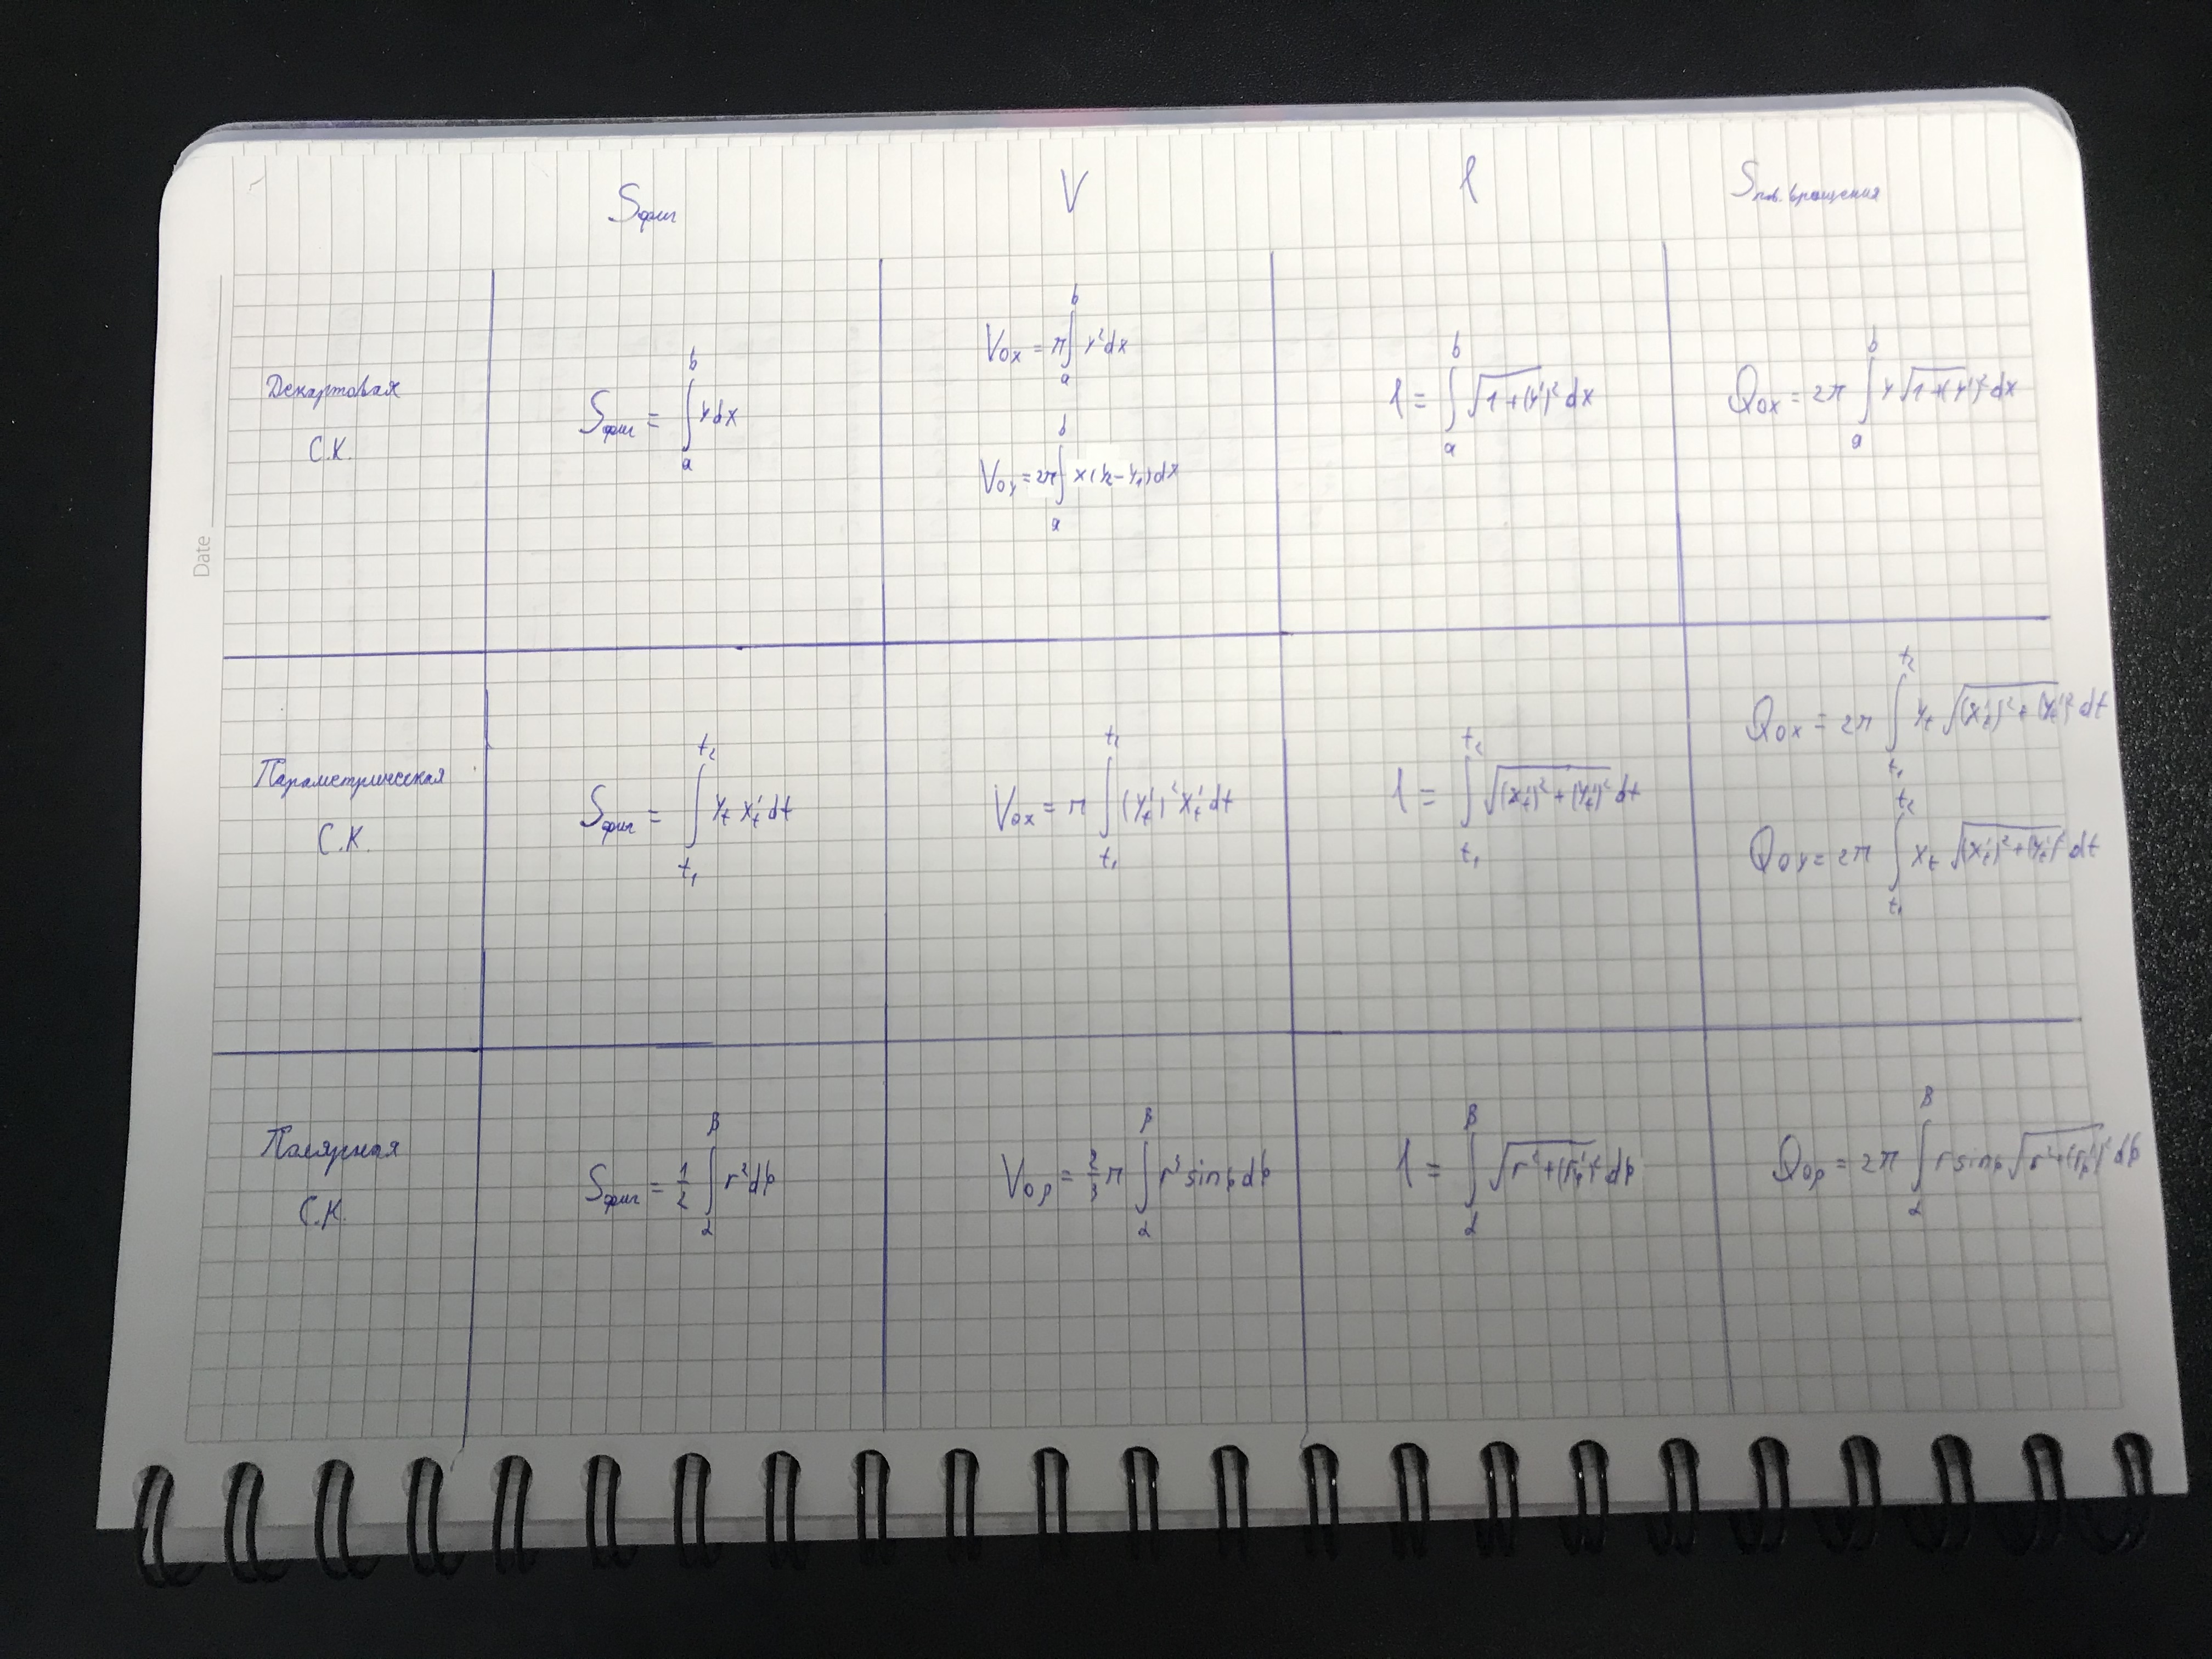 Sфиг V l Sпов. вращения
Декартовая С.К.
Sфиг = ∫ₐᵇ y dx
V₀ₓ = π ∫ₐᵇ y² dx
V₀ᵧ = 2π ∫ₐᵇ x(y₂ − y₁) dx
l = ∫ₐᵇ √(1 + (y')²) dx
Q₀ₓ = 2π ∫ₐᵇ y √(1 + (y')²) dx
Date
Параметрическая С.К.
Sфиг = ∫_{t₁}^{t₂} y_t x'_t dt
V₀ₓ = π ∫_{t₁}^{t₂} (y'_t)² x'_t dt
l = ∫_{t₁}^{t₂} √((x'_t)² + (y'_t)²) dt
Q₀ₓ = 2π ∫_{t₁}^{t₂} y_t √((x'_t)² + (y'_t)²) dt
Q₀ᵧ = 2π ∫_{t₁}^{t₂} x_t √((x'_t)² + (y'_t)²) dt
Полярная С.К.
Sфиг = 1/2 ∫_α^β r² dφ
V₀ₚ = 2/3 π ∫_α^β r³ sinφ dφ
l = ∫_α^β √(r² + (r'_φ)²) dφ
Q₀ₚ = 2π ∫_α^β r sinφ √(r² + (r'_φ)²) dφ